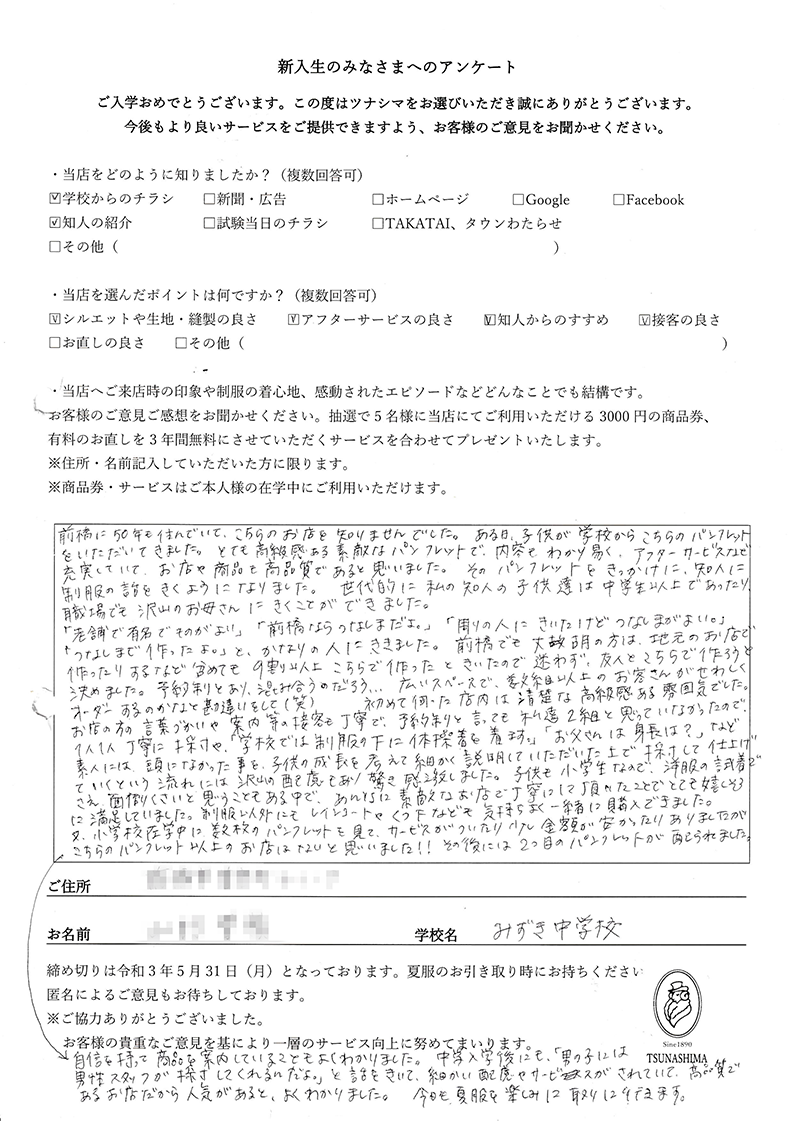 新入生のみなさまへのアンケート
ご入学おめでとうございます。この度はツナシマをお選びいただき誠にありがとうございます。
今後もより良いサービスをご提供できますよう、お客様のご意見をお聞かせください。
・当店をどのように知りましたか？（複数回答可）
☑学校からのチラシ □新聞・広告 □ホームページ □Google □Facebook
☑知人の紹介 □試験当日のチラシ □TAKATAI、タウンわたらせ
□その他（ ）
・当店を選んだポイントは何ですか？（複数回答可）
☑シルエットや生地・縫製の良さ ☑アフターサービスの良さ ☑知人からのすすめ ☑接客の良さ
□お直しの良さ □その他（ ）
・当店へご来店時の印象や制服の着心地、感動されたエピソードなどどんなことでも結構です。
お客様のご意見ご感想をお聞かせください。抽選で5名様に当店にてご利用いただける3000円の商品券、
有料のお直しを3年間無料にさせていただくサービスを合わせてプレゼントいたします。
※住所・名前記入していただいた方に限ります。
※商品券・サービスはご本人様の在学中にご利用いただけます。
前橋に50年も住んでいて、こちらのお店を知りませんでした。ある日、子供が学校からこちらのパンフレット
をいただいてきました。とても高級感ある素敵なパンフレットで、内容もわかり易く、アフターサービスなど
充実していて、お店や商品も高品質であると思いました。そのパンフレットをきっかけに、知人に
制服の話をきくようになりました。世代的に私の知人の子供達は中学生以上であったり、
職場でも沢山のお母さんにきくことができました。
「老舗で有名でものがよい」「前橋ならつなしまだよ。」「周りの人にきいたけどつなしまがよい。」
「つなしまで作ったよ。」と、かなりの人にききました。前橋でも大胡の方は、地元のお店で
作ったりするなど含めても9割以上こちらで作ったときいたので迷わず、友人とこちらで作ろうと
決めました。予約制とあり、混み合うのだろう…広いスペースで、数組以上のお客さんがせわしく
オーダーするのかなと勘違いをして(笑) 初めて伺った店内は清楚な高級感ある雰囲気でした。
お店の方の言葉づかいや案内等の接客も丁寧で、予約制と言っても私達2組と思っていなかったので、
1人1人丁寧に採寸や、学校では制服の下に体操着を着ます。」「お父さんは身長は？」など
素人には、頭になかった事を、子供の成長を考えて細かく説明していただいた上で採寸して仕上げ
ていくという流れには沢山の配慮もあり驚き感激しました。子供も小学生なので、洋服の試着で
さえ、面倒くさいと思うこともある中で、あんなに素敵なお店で丁寧にして頂けたことでとても嬉しそう
に満足していました。制服以外にもレインコートやくつ下なども気持ちよく一緒に購入できました。
又、小学校在学中に数枚のパンフレットを見て、サービスがついたり少し金額が安かったりありましたが
こちらのパンフレット以上のお店はないと思いました!! その後には2つ目のパンフレットが配られました。
ご住所
お名前 学校名 みずき中学校
締め切りは令和3年5月31日（月）となっております。夏服のお引き取り時にお持ちください
匿名によるご意見もお待ちしております。
※ご協力ありがとうございました。
お客様の貴重なご意見を基により一層のサービス向上に努めてまいります。
Since1890
TSUNASHIMA
自信を持って商品を案内していることもよくわかりました。中学入学後にも、「男の子には
男性スタッフが採寸してくれるんだよ。」と話をきいて、細かい配慮やサービスがされていて、高品質で
あるお店だから人気があると、よくわかりました。今日も夏服を楽しみに取りに行てきます。